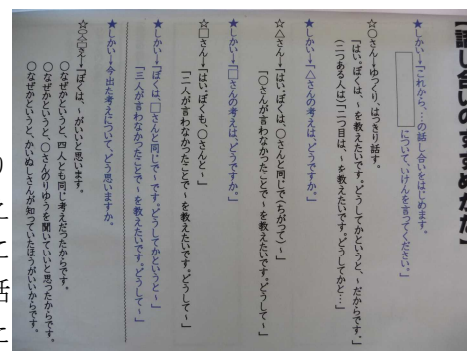 【話し合いのすすめかた】
★しかい→「これから、…の話し合いをはじめます。
について、いけんを言ってください。」
☆○さん→ゆっくり、はっきり話す。
「はい。ぼくは、～を教えたいです。どうしてかというと、～だからです。」
(二つある人は)「二つ目は、～を教えたいです。どうしてかと…」
★しかい→「△さんの考えは、どうですか。」
☆△さん→「はい、ぼくは、○さんと同じで(ちがって)～」
「○さんが言わなかったことで～を教えたいです。どうして～」
★しかい→「□さんの考えは、どうですか。」
☆□さん→「はい、ぼくも、○さんと～」
「二人が言わなかったことで～を教えたいです。どうして～」
★しかい→「ぼくは、□さんと同じで～です。どうしてかというと～」
「三人が言わなかったことで～を教えたいです。どうして～」
★しかい→今出た考えについて、どう思いますか。
☆○△□え→「ぼくは、～がいいと思います。
○なぜかというと、四人とも同じ考えだったからです。
○なぜかというと、○さんのりゆうを聞いていいと思ったからです。
○なぜかというと、かいぬしさんが知っていたほうがいいからです。
り
と
に
話
に